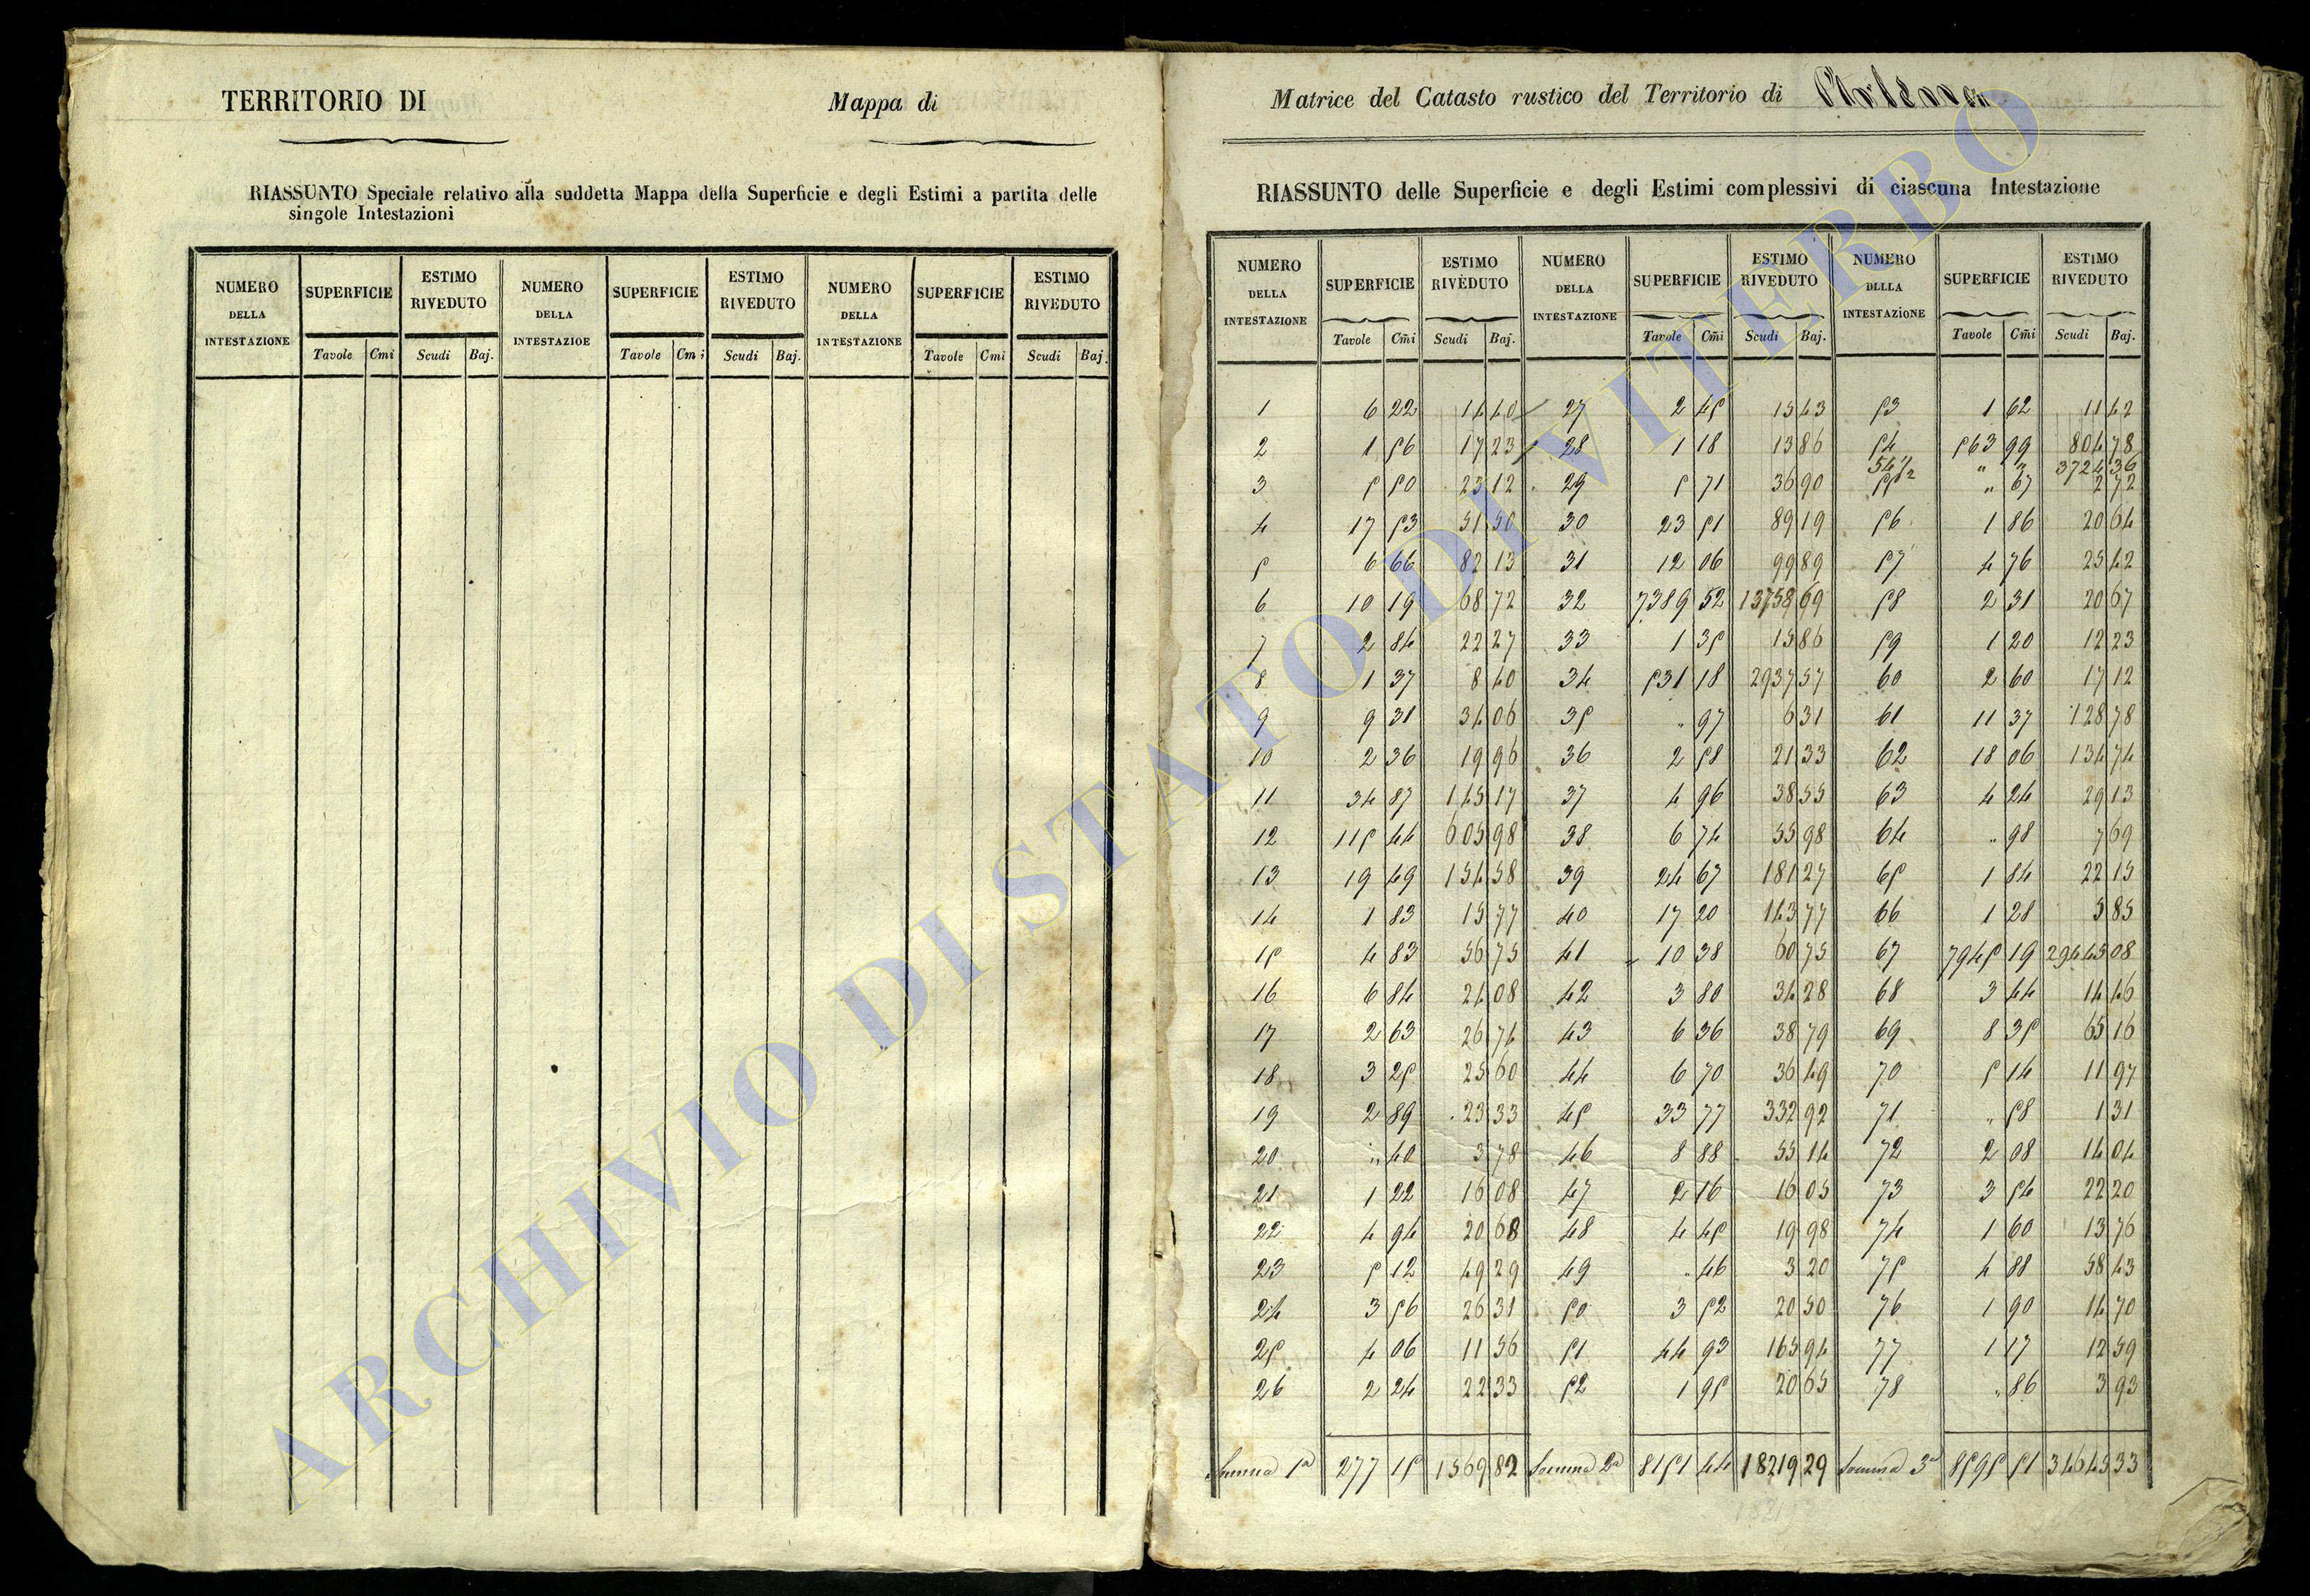 TERRITORIO DI Mappa di
RIASSUNTO Speciale relativo alla suddetta Mappa della Superficie e degli Estimi a partita delle
singole Intestazioni
NUMERO DELLA INTESTAZIONE SUPERFICIE ESTIMO RIVEDUTO NUMERO DELLA INTESTAZIOE SUPERFICIE ESTIMO RIVEDUTO NUMERO DELLA INTESTAZIONE SUPERFICIE ESTIMO RIVEDUTO
Tavole Cmi Scudi Baj. Tavole Cmi Scudi Baj. Tavole Cmi Scudi Baj.
Matrice del Catasto rustico del Territorio di Arlena
RIASSUNTO delle Superficie e degli Estimi complessivi di ciascuna Intestazione
NUMERO DELLA INTESTAZIONE SUPERFICIE ESTIMO RIVEDUTO NUMERO DELLA INTESTAZIONE SUPERFICIE ESTIMO RIVEDUTO NUMERO DLLLA INTESTAZIONE SUPERFICIE ESTIMO RIVEDUTO
Tavole Cm̃i Scudi Baj. Tavole Cm̃i Scudi Baj. Tavole Cm̃i Scudi Baj.
1 6 22 14 40 27 2 45 15 43 53 1 62 11 42
2 1 56 17 23 28 1 18 13 86 54 563 99 804 78
54 1/2 " " 3724 36
3 5 50 23 12 29 5 71 36 90 55 " 67 2 72
4 17 53 51 50 30 23 51 89 19 56 1 86 20 64
5 6 66 82 13 31 12 06 99 89 57 4 76 25 42
6 10 19 68 72 32 7389 52 13758 69 58 2 31 20 67
7 2 84 22 27 33 1 35 15 86 59 1 20 12 23
8 1 37 8 40 34 531 18 2937 57 60 2 60 17 12
9 9 31 34 06 35 " 97 6 31 61 11 37 128 78
10 2 36 19 96 36 2 58 21 33 62 18 06 134 74
11 34 87 145 17 37 4 96 38 55 63 4 24 29 13
12 115 44 605 98 38 6 74 55 98 64 " 98 7 69
13 19 49 154 58 39 24 67 181 27 65 1 84 22 15
14 1 83 15 77 40 17 20 143 77 66 1 28 5 85
15 4 83 56 75 41 10 38 60 75 67 7945 19 29445 08
16 6 84 24 08 42 3 80 34 28 68 3 44 14 46
17 2 63 26 74 43 6 36 38 79 69 8 35 65 16
18 3 25 25 60 44 6 70 36 49 70 5 14 11 97
19 2 89 23 33 45 33 77 332 92 71 " 58 1 31
20 " 40 3 78 46 8 88 55 14 72 2 08 14 04
21 1 22 16 08 47 2 16 16 05 73 3 54 22 20
22 4 94 20 68 48 4 45 19 98 74 1 60 13 76
23 5 12 49 29 49 " 46 3 20 75 4 88 58 43
24 3 56 26 31 50 3 52 20 50 76 1 90 14 70
25 4 06 11 56 51 44 93 165 94 77 1 17 12 59
26 2 24 22 33 52 1 95 20 65 78 " 86 3 93
Somma 1ª 277 15 1569 82 Somma 2ª 8151 44 18219 29 Somma 3ª 8595 51 34645 33
ARCHIVIO DI STATO DI VITERBO